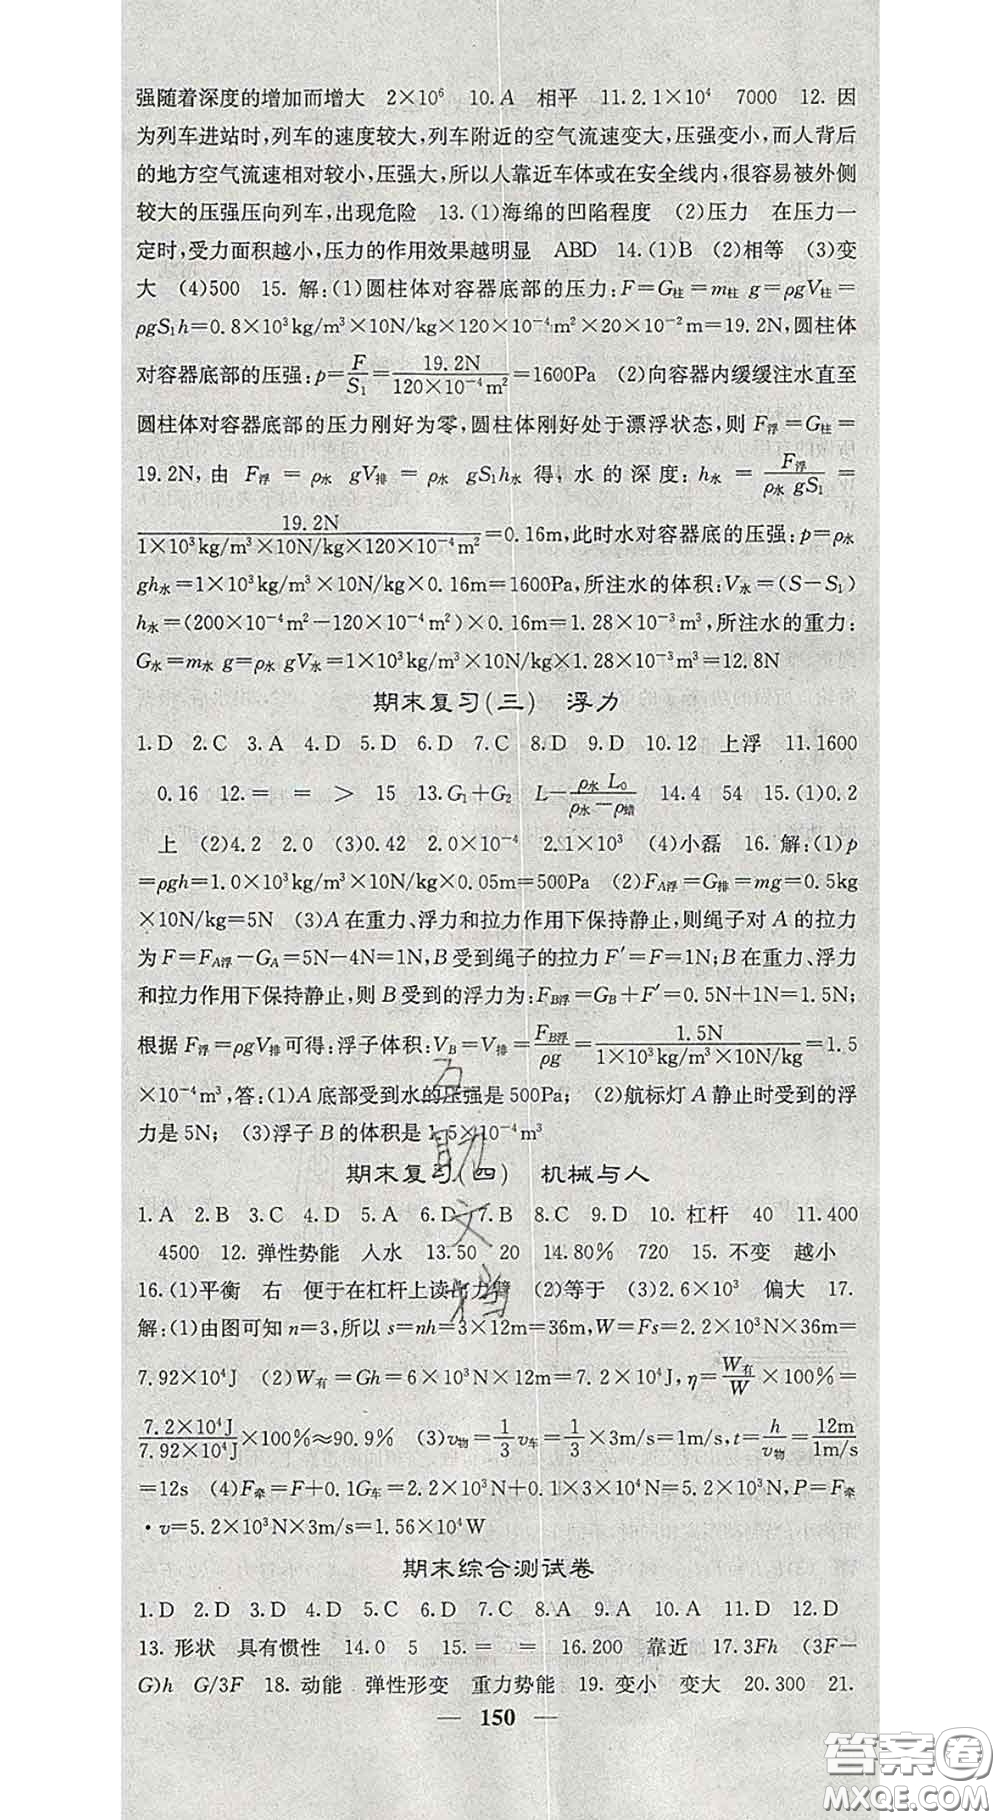 强随着深度的增加而增大　2×10⁶　10.A　相平　11.2.1×10⁴　7000　12.因
为列车进站时,列车的速度较大,列车附近的空气流速变大,压强变小,而人背后
的地方空气流速相对较小,压强大,所以人靠近车体或在安全线内,很容易被外侧
较大的压强压向列车,出现危险　13.(1)海绵的凹陷程度　(2)压力　在压力一
定时,受力面积越小,压力的作用效果越明显　ABD　14.(1)B　(2)相等　(3)变
大　(4)500　15.解:(1)圆柱体对容器底部的压力:F=G柱=m柱 g=ρgV柱=
ρgS₁h=0.8×10³kg/m³×10N/kg×120×10⁻⁴m²×20×10⁻²m=19.2N,圆柱体
对容器底部的压强:p=F/S₁=19.2N/(120×10⁻⁴m²)=1600Pa　(2)向容器内缓缓注水直至
圆柱体对容器底部的压力刚好为零,圆柱体刚好处于漂浮状态,则 F浮=G柱=
19.2N,由 F浮=ρ水 gV排=ρ水 gS₁h水 得,水的深度:h水=F浮/(ρ水 gS₁)=
19.2N/(1×10³kg/m³×10N/kg×120×10⁻⁴m²)=0.16m,此时水对容器底的压强:p=ρ水
gh水=1×10³kg/m³×10N/kg×0.16m=1600Pa,所注水的体积:V水=(S-S₁)
h水=(200×10⁻⁴m²-120×10⁻⁴m²)×0.16m=1.28×10⁻³m³,所注水的重力:
G水=m水 g=ρ水 gV水=1×10³kg/m³×10N/kg×1.28×10⁻³m³=12.8N
期末复习(三)　浮力
1.D　2.C　3.A　4.D　5.D　6.D　7.C　8.D　9.D　10.12　上浮　11.1600
0.16　12.=　=　>　15　13.G₁+G₂　L-ρ水 L₀/(ρ水-ρ蜡)　14.4　54　15.(1)0.2
上　(2)4.2　2.0　(3)0.42　2.0×10⁻⁴　2.1×10³　(4)小磊　16.解:(1)p
=ρgh=1.0×10³kg/m³×10N/kg×0.05m=500Pa　(2)FA浮=G排=mg=0.5kg
×10N/kg=5N　(3)A在重力、浮力和拉力作用下保持静止,则绳子对 A 的拉力
为 F=FA浮-GA=5N-4N=1N,B 受到绳子的拉力 F′=F=1N;B在重力、浮力
和拉力作用下保持静止,则 B 受到的浮力为:FB浮=GB+F′=0.5N+1N=1.5N;
根据 F浮=ρgV排可得:浮子体积:VB=V排=FB浮/ρg=1.5N/(1×10³kg/m³×10N/kg)=1.5
×10⁻⁴m³,答:(1)A 底部受到水的压强是 500Pa;　(2)航标灯 A 静止时受到的浮
力是 5N;　(3)浮子 B 的体积是 1.5×10⁻⁴m³
期末复习(四)　机械与人
1.A　2.B　3.C　4.D　5.A　6.D　7.B　8.C　9.D　10.杠杆　40　11.400
4500　12.弹性势能　人水　13.50　20　14.80%　720　15.不变　越小
16.(1)平衡　右　便于在杠杆上读出力臂　(2)等于　(3)2.6×10³　偏大　17.
解:(1)由图可知 n=3,所以 s=nh=3×12m=36m,W=Fs=2.2×10³N×36m=
7.92×10⁴J　(2)W有=Gh=6×10³N×12m=7.2×10⁴J,η=W有/W×100%=
7.2×10⁴J/7.92×10⁴J×100%≈90.9%　(3)v物=1/3 v车=1/3×3m/s=1m/s,t=h/v物=12m/1m/s
=12s　(4)F牵=F+0.1G车=2.2×10³N+0.1×3×10⁴N=5.2×10³N,P=F牵
·v=5.2×10³N×3m/s=1.56×10⁴W
期末综合测试卷
1.D　2.D　3.D　4.D　5.C　6.D　7.C　8.A　9.A　10.A　11.D　12.D
13.形状　具有惯性　14.0　5　15.=　=　16.200　靠近　17.3Fh　(3F-
G)h　G/3F　18.动能　弹性形变　重力势能　19.变小　变大　20.300　21.
— 150 —
互助文档
答案圈
MXQE.COM